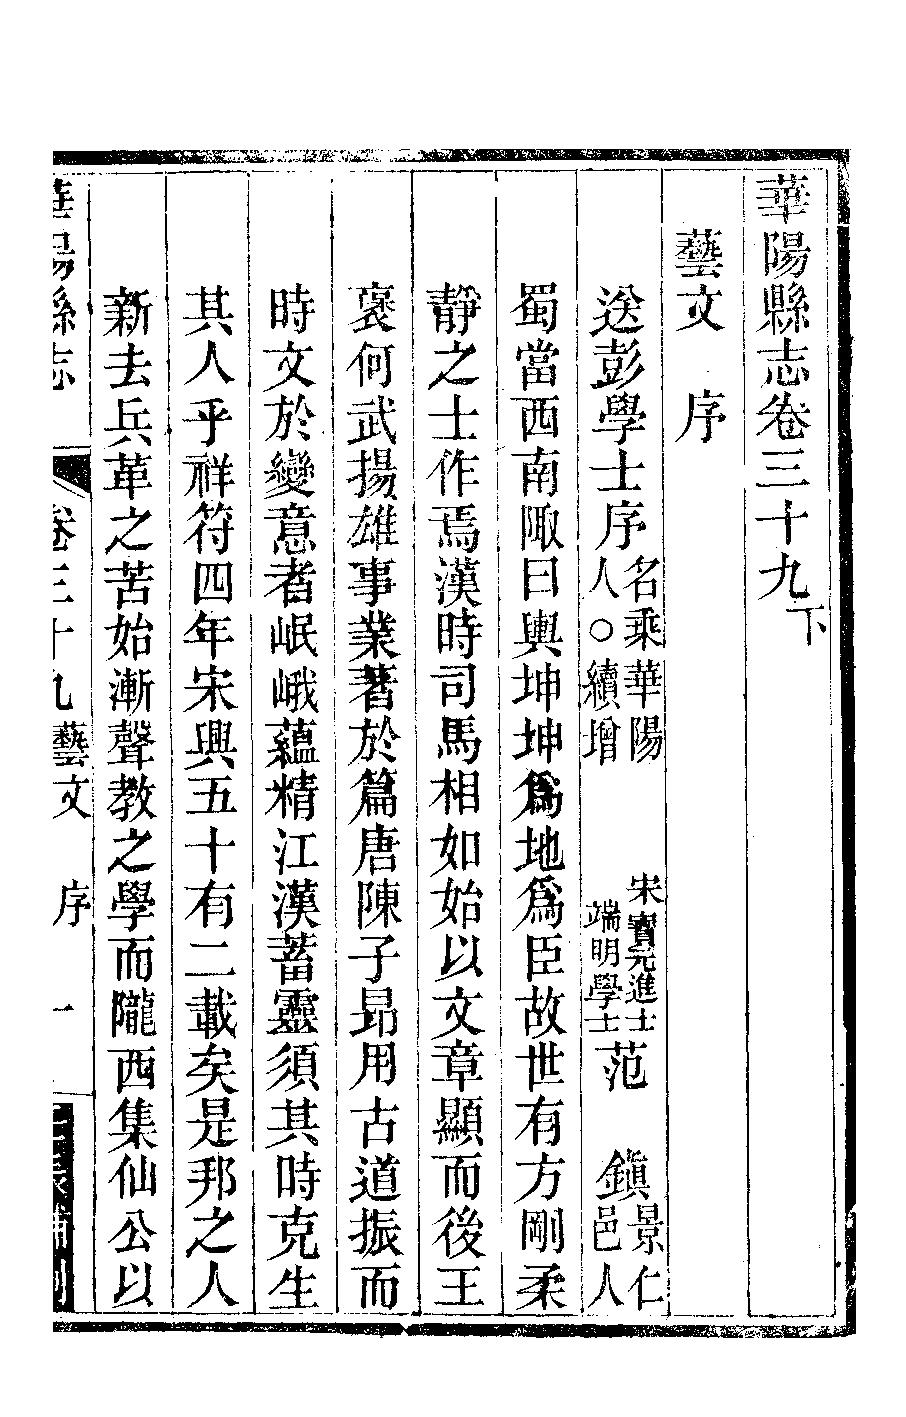 華陽縣志卷三十九下
藝文 序
送彭學士序名乘華陽人○續增 宋寶元進士端明學士范 鎮景仁邑人
蜀當西南陬曰輿坤坤爲地爲臣故世有方剛柔
靜之士作焉漢時司馬相如始以文章顯而後王
褒何武揚雄事業著於篇唐陳子昂用古道振而
時文於變意者岷峨蘊精江漢蓄靈須其時克生
其人乎祥符四年宋興五十有二載矣是邦之人
新去兵革之苦始漸聲教之學而隴西集仙公以
華陽縣志 卷三十九藝文 序 一